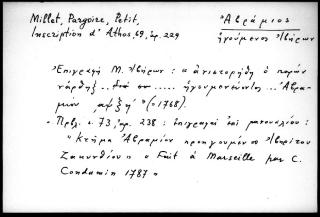 Millet, Pargoire, Petit,
Inscription d'Athos, 69, ἀρ. 229
Ἀβράμιος
ἡγούμενος Ἰβήρων
Ἐπιγραφή Μ. Ἰβήρων: "ἀνιστορήθη ὁ παρών
νάρθηξ ... ἐπὶ ..... ἡγουμενεύοντος ... Ἀβρα-
μίου αψξή" (=1768).
- Πρβλ. σ. 73, ἀρ. 238: ἐπιγραφή ἐπί μανουαλίου:
"Κτῆμα Ἀβραμίου προηγουμένου Ἰβηρίτου
Ζακυνθίου" "Fait à Marseille par C.
Condamin 1787"